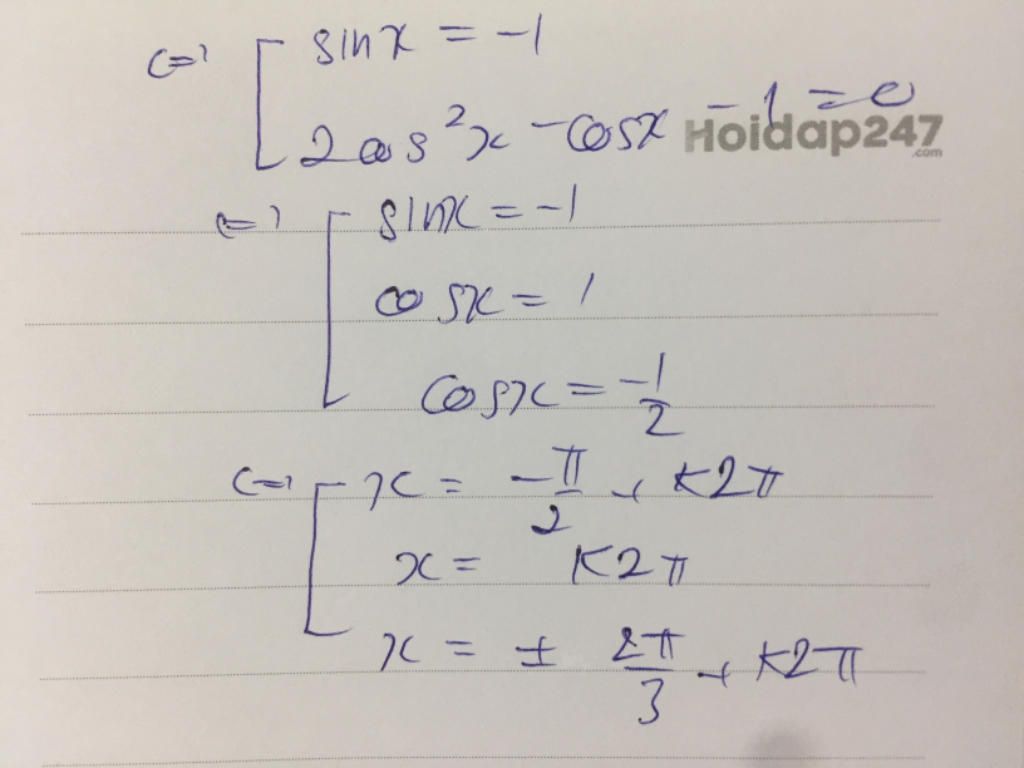 <=> [ sinx = -1
2cos²x - cosx - 1 = 0
Hoidap247
.com
<=> [ sinx = -1
cosx = 1
cosx = -1/2
<=> [ x = -π/2 + k2π
x = k2π
x = ± 2π/3 + k2π